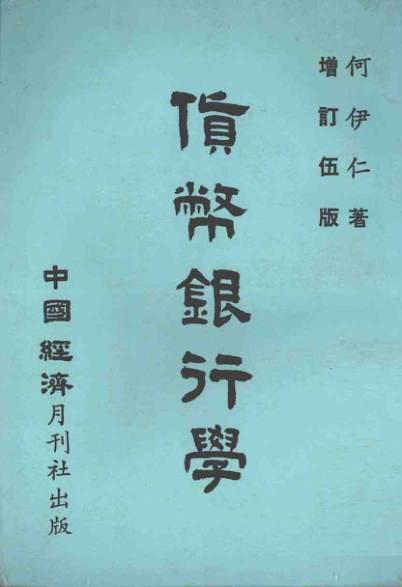 何伊仁著
增訂伍版
貨幣銀行學
中國經濟月刊社出版